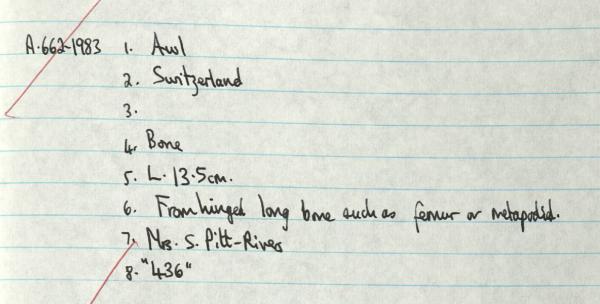 A.662-1983 1. Awl
2. Switzerland
3.
4. Bone
5. L. 13.5cm.
6. From hinged long bone such as femur or metapodial.
7. Mrs. S. Pitt-Rivers
8. "436"